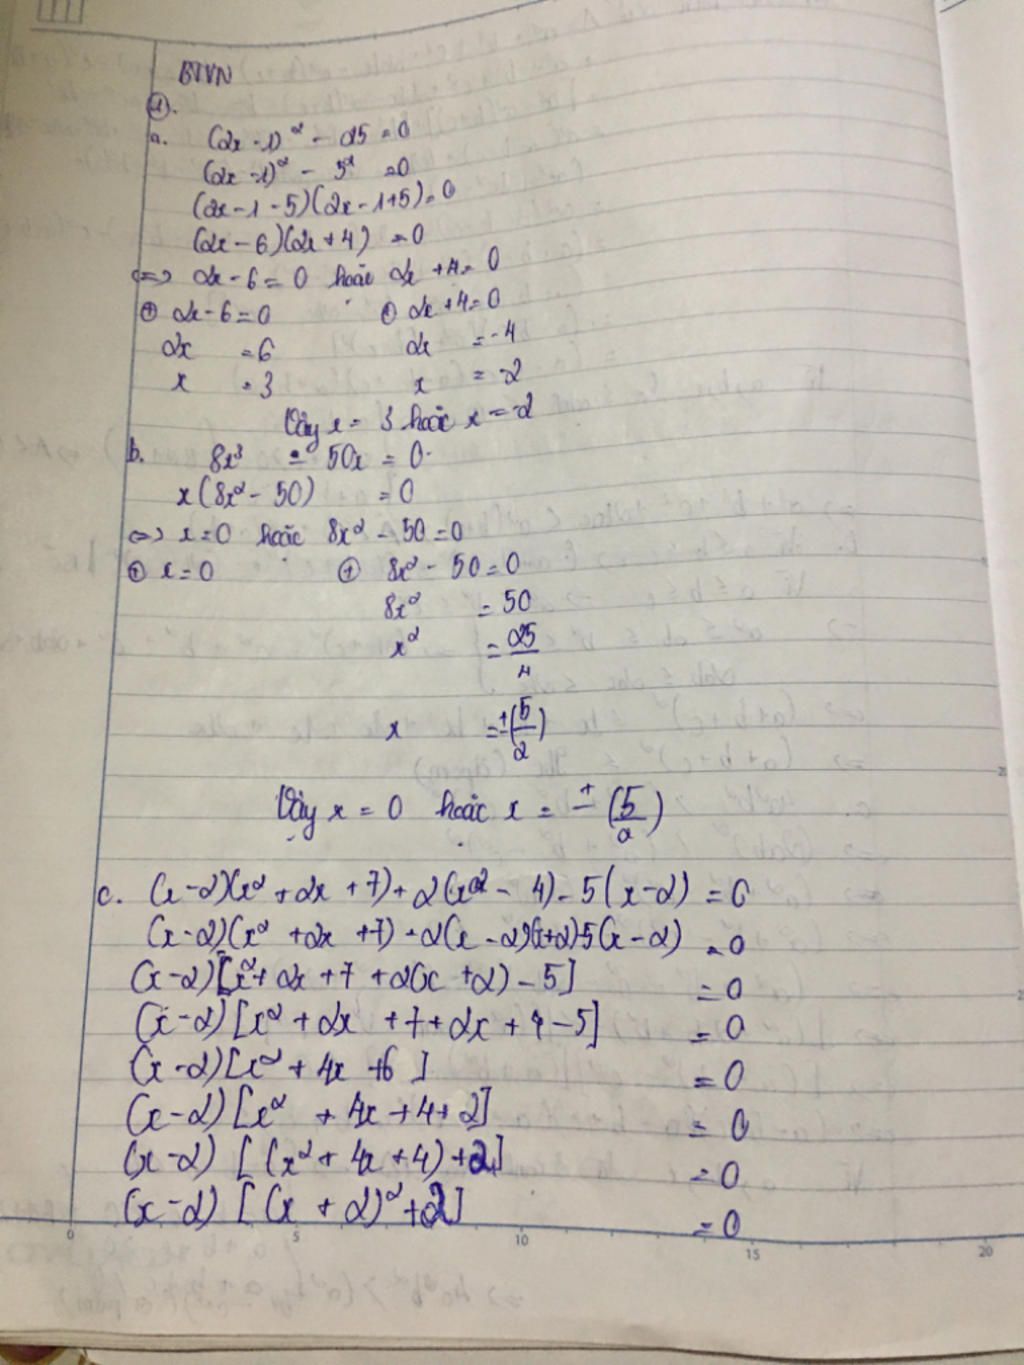 BTVN
①.
a. (2x-1)² - 25 = 0
(2x-1)² - 5² = 0
(2x-1-5)(2x-1+5) = 0
(2x-6)(2x+4) = 0
<=> 2x-6 = 0 hoặc 2x+4 = 0
⊕ 2x-6 = 0 ⊕ 2x+4 = 0
2x = 6 2x = -4
x = 3 x = -2
Vậy x = 3 hoặc x = -2
b. 8x³ - 50x = 0
x(8x² - 50) = 0
<=> x = 0 hoặc 8x² - 50 = 0
⊕ x = 0 ⊕ 8x² - 50 = 0
8x² = 50
x² = 25/4
x = ±(5/2)
Vậy x = 0 hoặc x = ±(5/2)
c. (x-2)(x² + 2x + 7) + 2(x² - 4) - 5(x-2) = 0
(x-2)(x² + 2x + 7) + 2(x-2)(x+2) - 5(x-2) = 0
(x-2)[x² + 2x + 7 + 2(x+2) - 5] = 0
(x-2)[x² + 2x + 7 + 2x + 4 - 5] = 0
(x-2)[x² + 4x + 6] = 0
(x-2)[x² + 4x + 4 + 2] = 0
(x-2)[(x² + 4x + 4) + 2] = 0
(x-2)[(x+2)² + 2] = 0
0 5 10 15 20